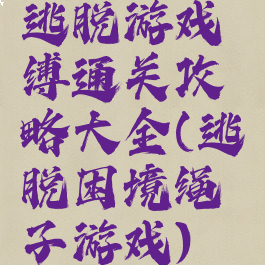 逃脱游戏
缚通关攻
略大全(逃
脱困境绳
子游戏)